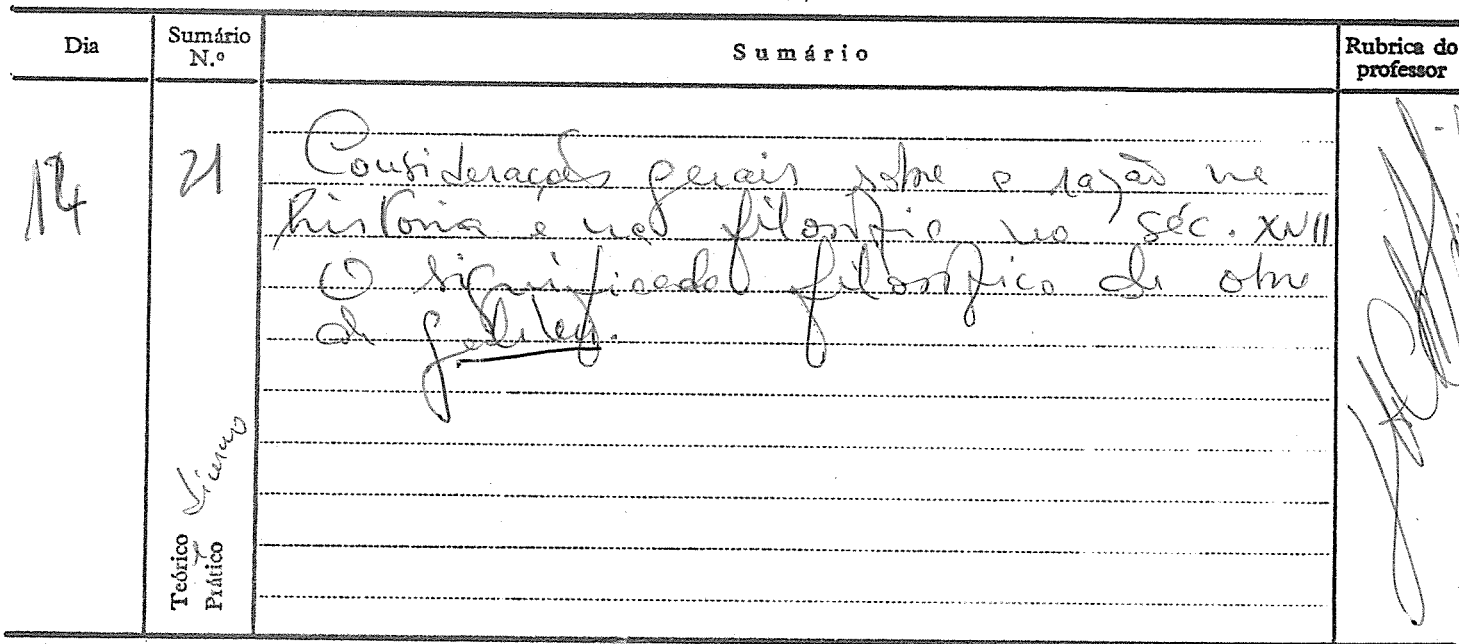 Dia
Sumário
N.º
Sumário
Rubrica do
professor
14
21
Considerações gerais sobre a razão na
história e na filosofia no séc. XVII
O significado filosófico da obra
de Galileu.
Teórico
Prático